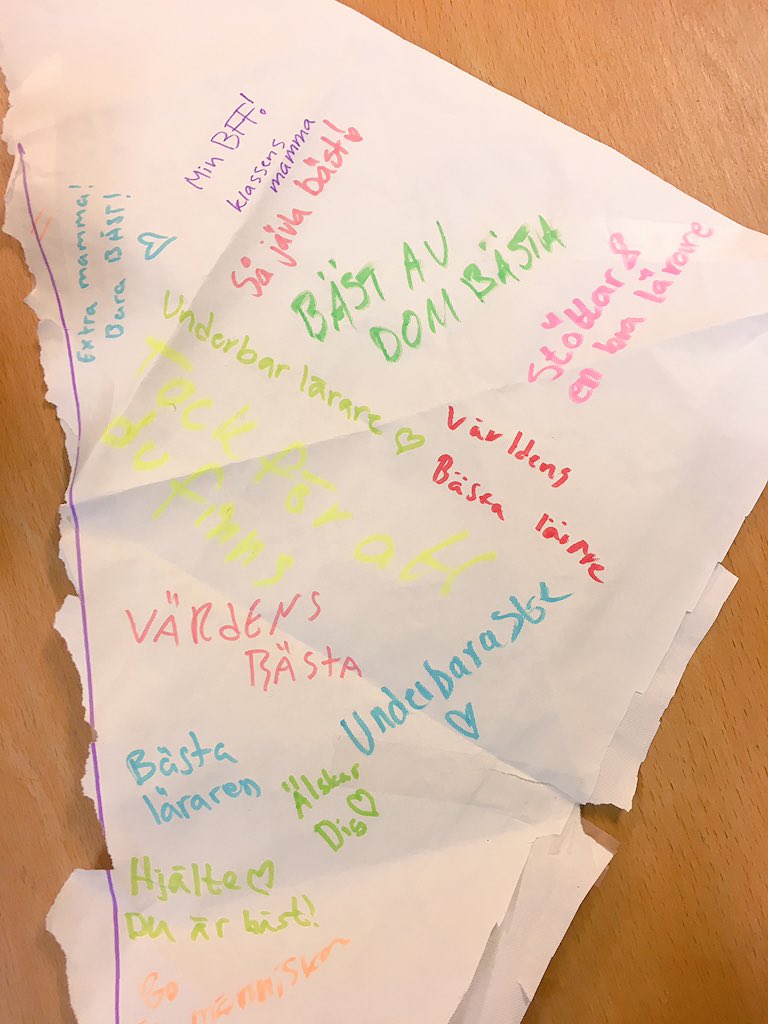 Min BFF!
klassens
mamma
Så jävla bäst!
Extra mamma!
Bara BÄST!
BÄST AV
DOM BÄSTA
Stöttar &
en bra lärare
Underbar lärare
Tack för att
du finns
Världens
Bästa lärare
VÄRLDENS
BÄSTA
Underbaraste
Bästa
läraren
Älskar
Dig
Hjälte
Du är bäst!
Go
människa